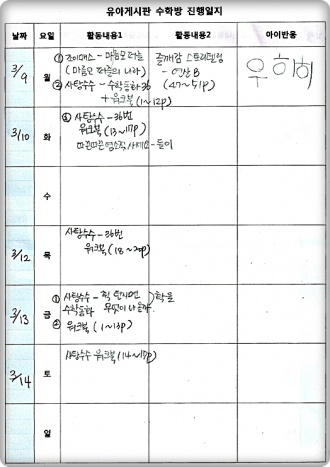 유아게시판 수학방 진행일지
날짜 요일 활동내용1 활동내용2 아이반응
3/9 월
① 조이매스 - 마음모
(마음모 나라)
② 사탕수수 - 수학동화 36
+ 워크북 (1~12p)
즐깨감 스토리텔링
- 연산 B
(47~51p)
우 히히
3/10 화
① 사탕수수 - 36번
워크북 (13~17p)
수
3/12 목
사탕수수 - 36번
워크북 (18~20p)
3/13 금
① 사탕수수 -
수학동화 무엇이
② 워크북 (1~13p)
3/14 토
사탕수수 워크북 (14~17p)
일